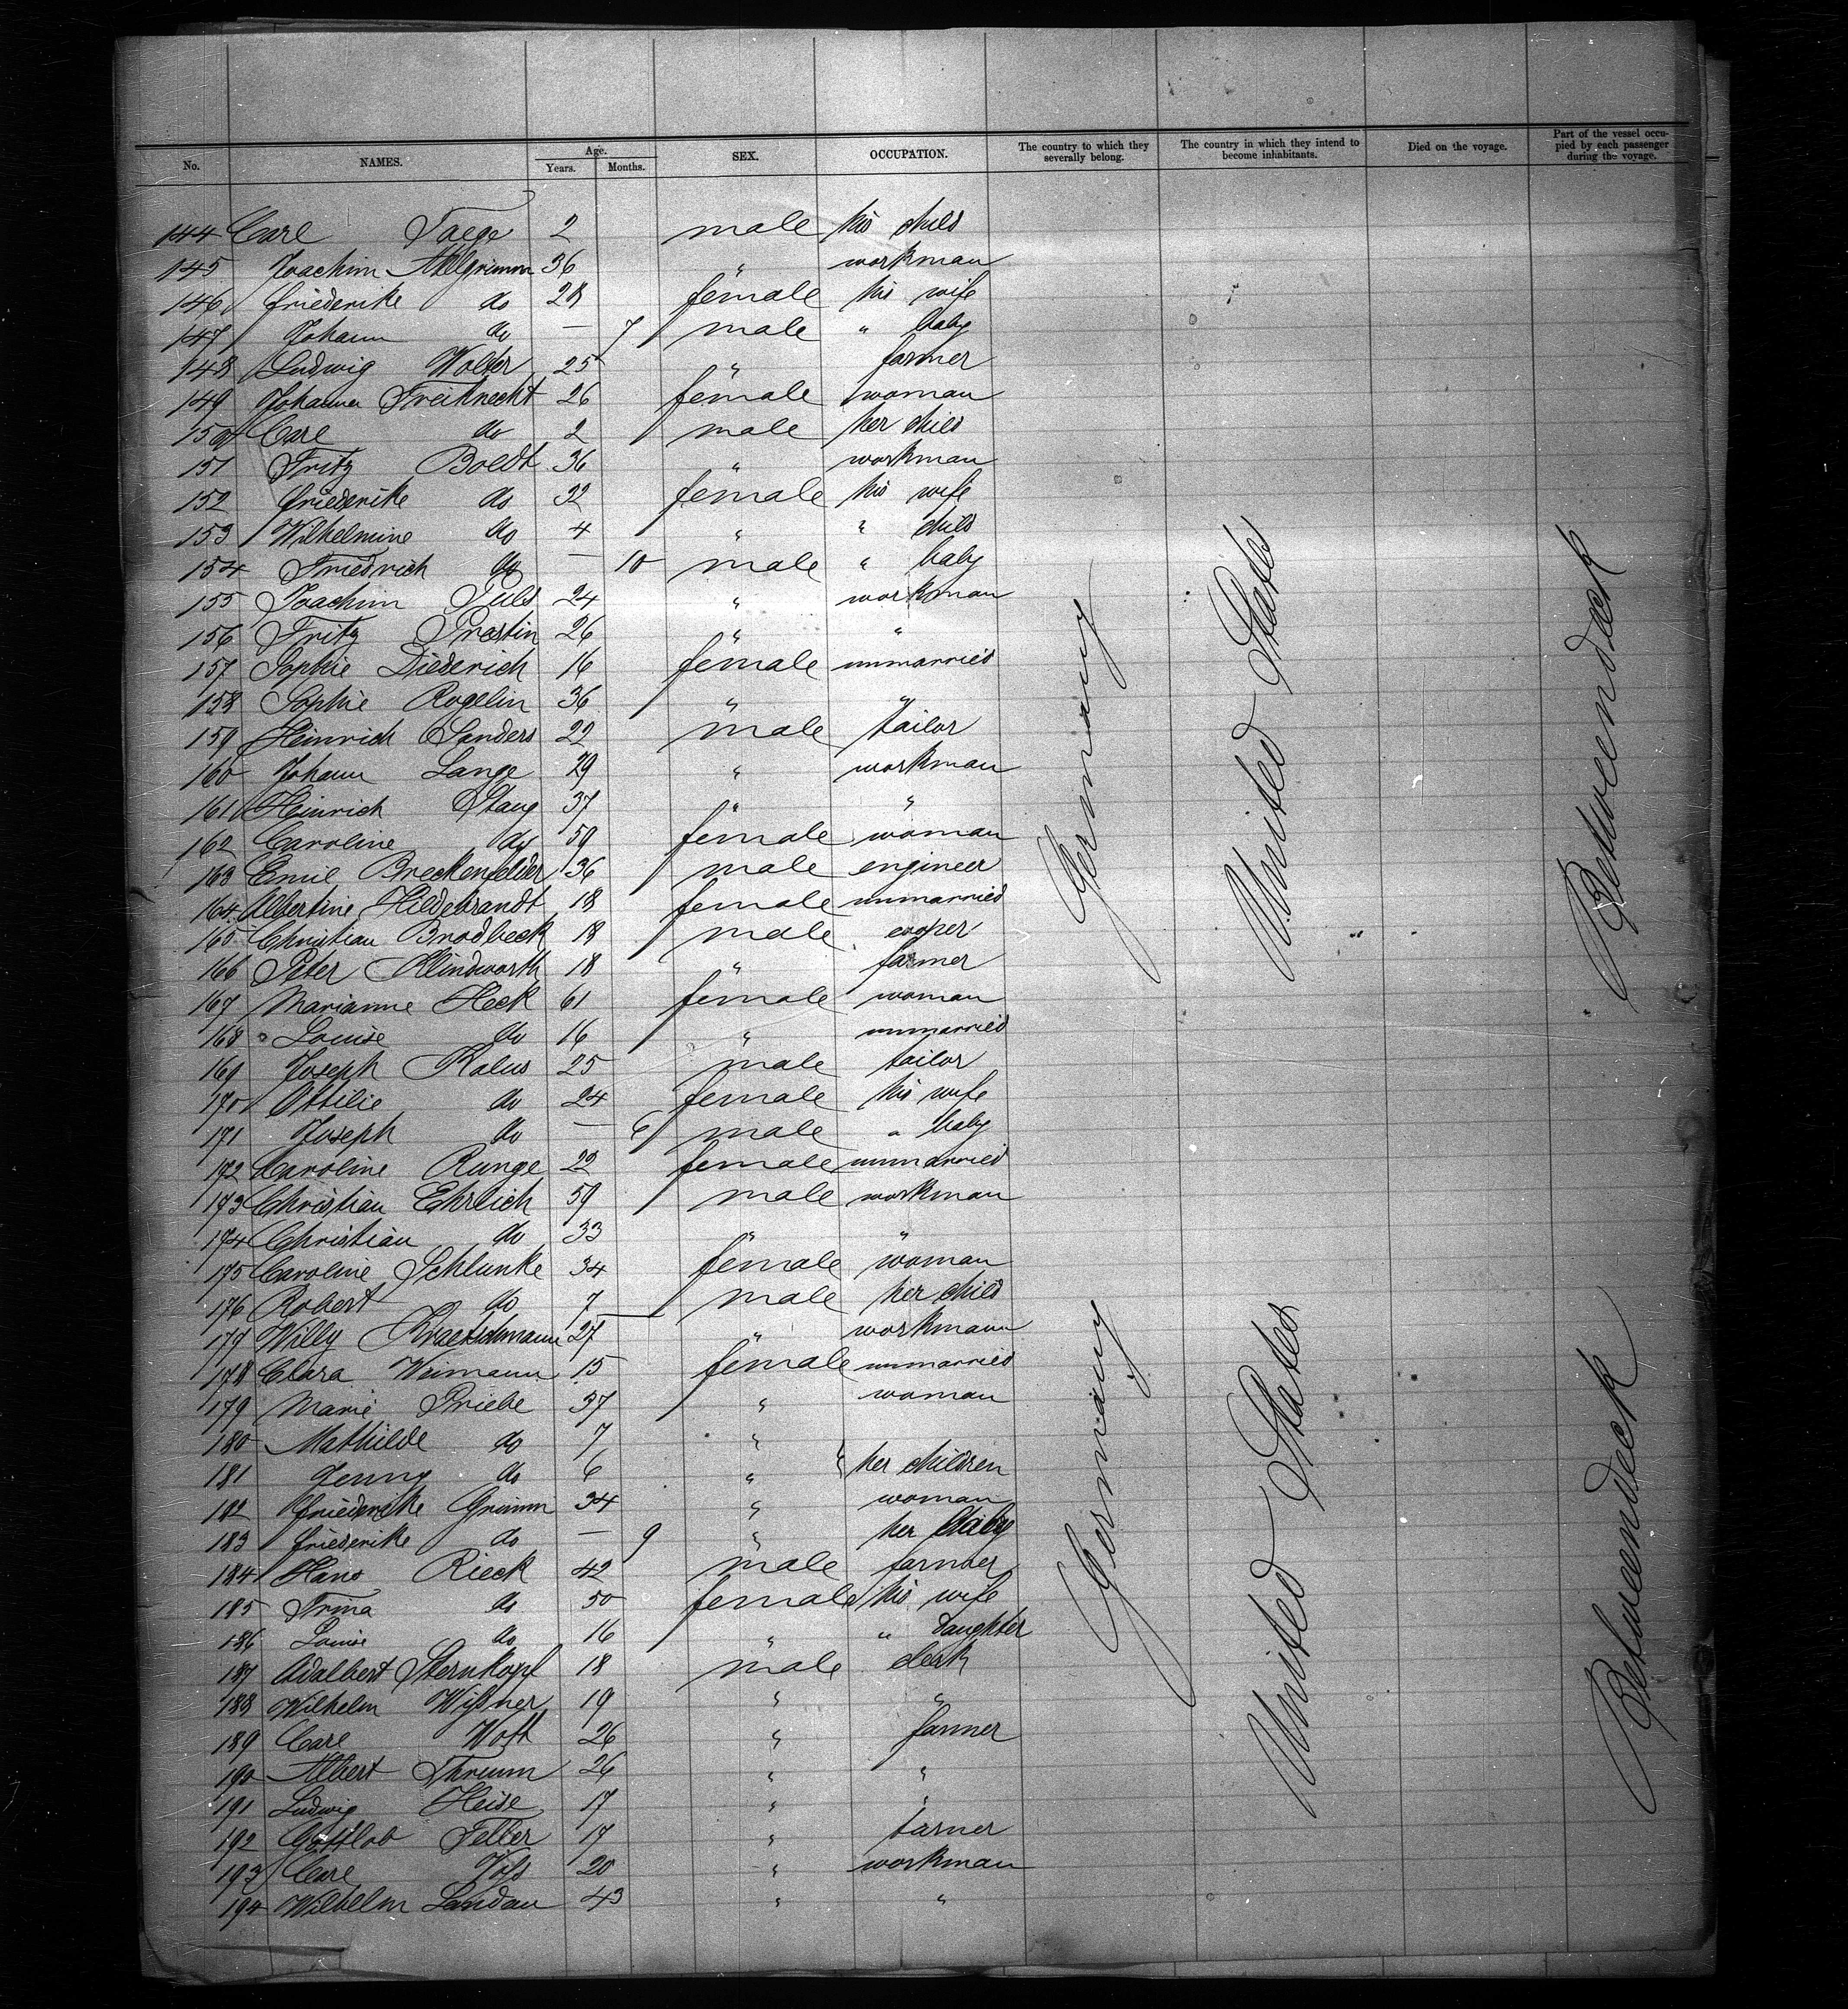 No. NAMES. Age. Years. Months. SEX. OCCUPATION. The country to which they severally belong. The country in which they intend to become inhabitants. Died on the voyage. Part of the vessel occupied by each passenger during the voyage.
144 Carl Taege 2 male his child
145 Joachim Ahlgrimm 36 " workman
146 Friederike do 28 female his wife
147 Johann do — 7 male " baby
148 Ludwig Wolter 25 " farmer
149 Johanna Freiknecht 26 female woman
150 Carl do 2 male her child
151 Fritz Boldt 36 " workman
152 Friederike do 32 female his wife
153 Wilhelmine do 4 " " child
154 Friedrich do — 10 male " baby
155 Joachim Puls 24 " workman
156 Fritz Prestin 26 " "
157 Sophie Diederich 16 female unmarried
158 Sophie Rogelin 36 " "
159 Heinrich Sanders 22 male tailor
160 Johann Lange 29 " workman
161 Heinrich Stang 37 " "
162 Caroline do 59 female woman
163 Emil Breckenfelder 36 male engineer
164 Albertine Hildebrandt 18 female unmarried
165 Christian Brodbeck 18 male cooper
166 Peter Klindworth 18 " farmer
167 Marianne Heck 61 female woman
168 Louise do 16 " unmarried
169 Joseph Kalus 25 male tailor
170 Ottilie do 24 female his wife
171 Joseph do — 6 male " baby
172 Caroline Runge 22 female unmarried
173 Christian Ehrlich 59 male workman
174 Christian do 33 " "
175 Caroline Schlunke 34 female woman
176 Robert do 7 male her child
177 Willy Kraetschmann 27 " workmann
178 Clara Weimann 15 female unmarried
179 Marie Priebe 37 " woman
180 Mathilde do 7 "
181 Jenny do 6 " her children
182 Friederike Gramm 34 " woman
183 Friederike do — 9 " her baby
184 Hans Rieck 42 male farmer
185 Trina do 50 female his wife
186 Louise do 16 " " daughter
187 Adalbert Sternkopf 18 male clerk
188 Wilhelm Wißner 19 " "
189 Carl Voft 26 " farmer
190 Albert Thrum 26 " "
191 Ludwig Heise 17 " "
192 Gottlob Feller 17 " tarner
193 Carl Voß 20 " workman
194 Wilhelm Landau 43 " "
Germany United States Betweendeck
Germany United States Betweendeck